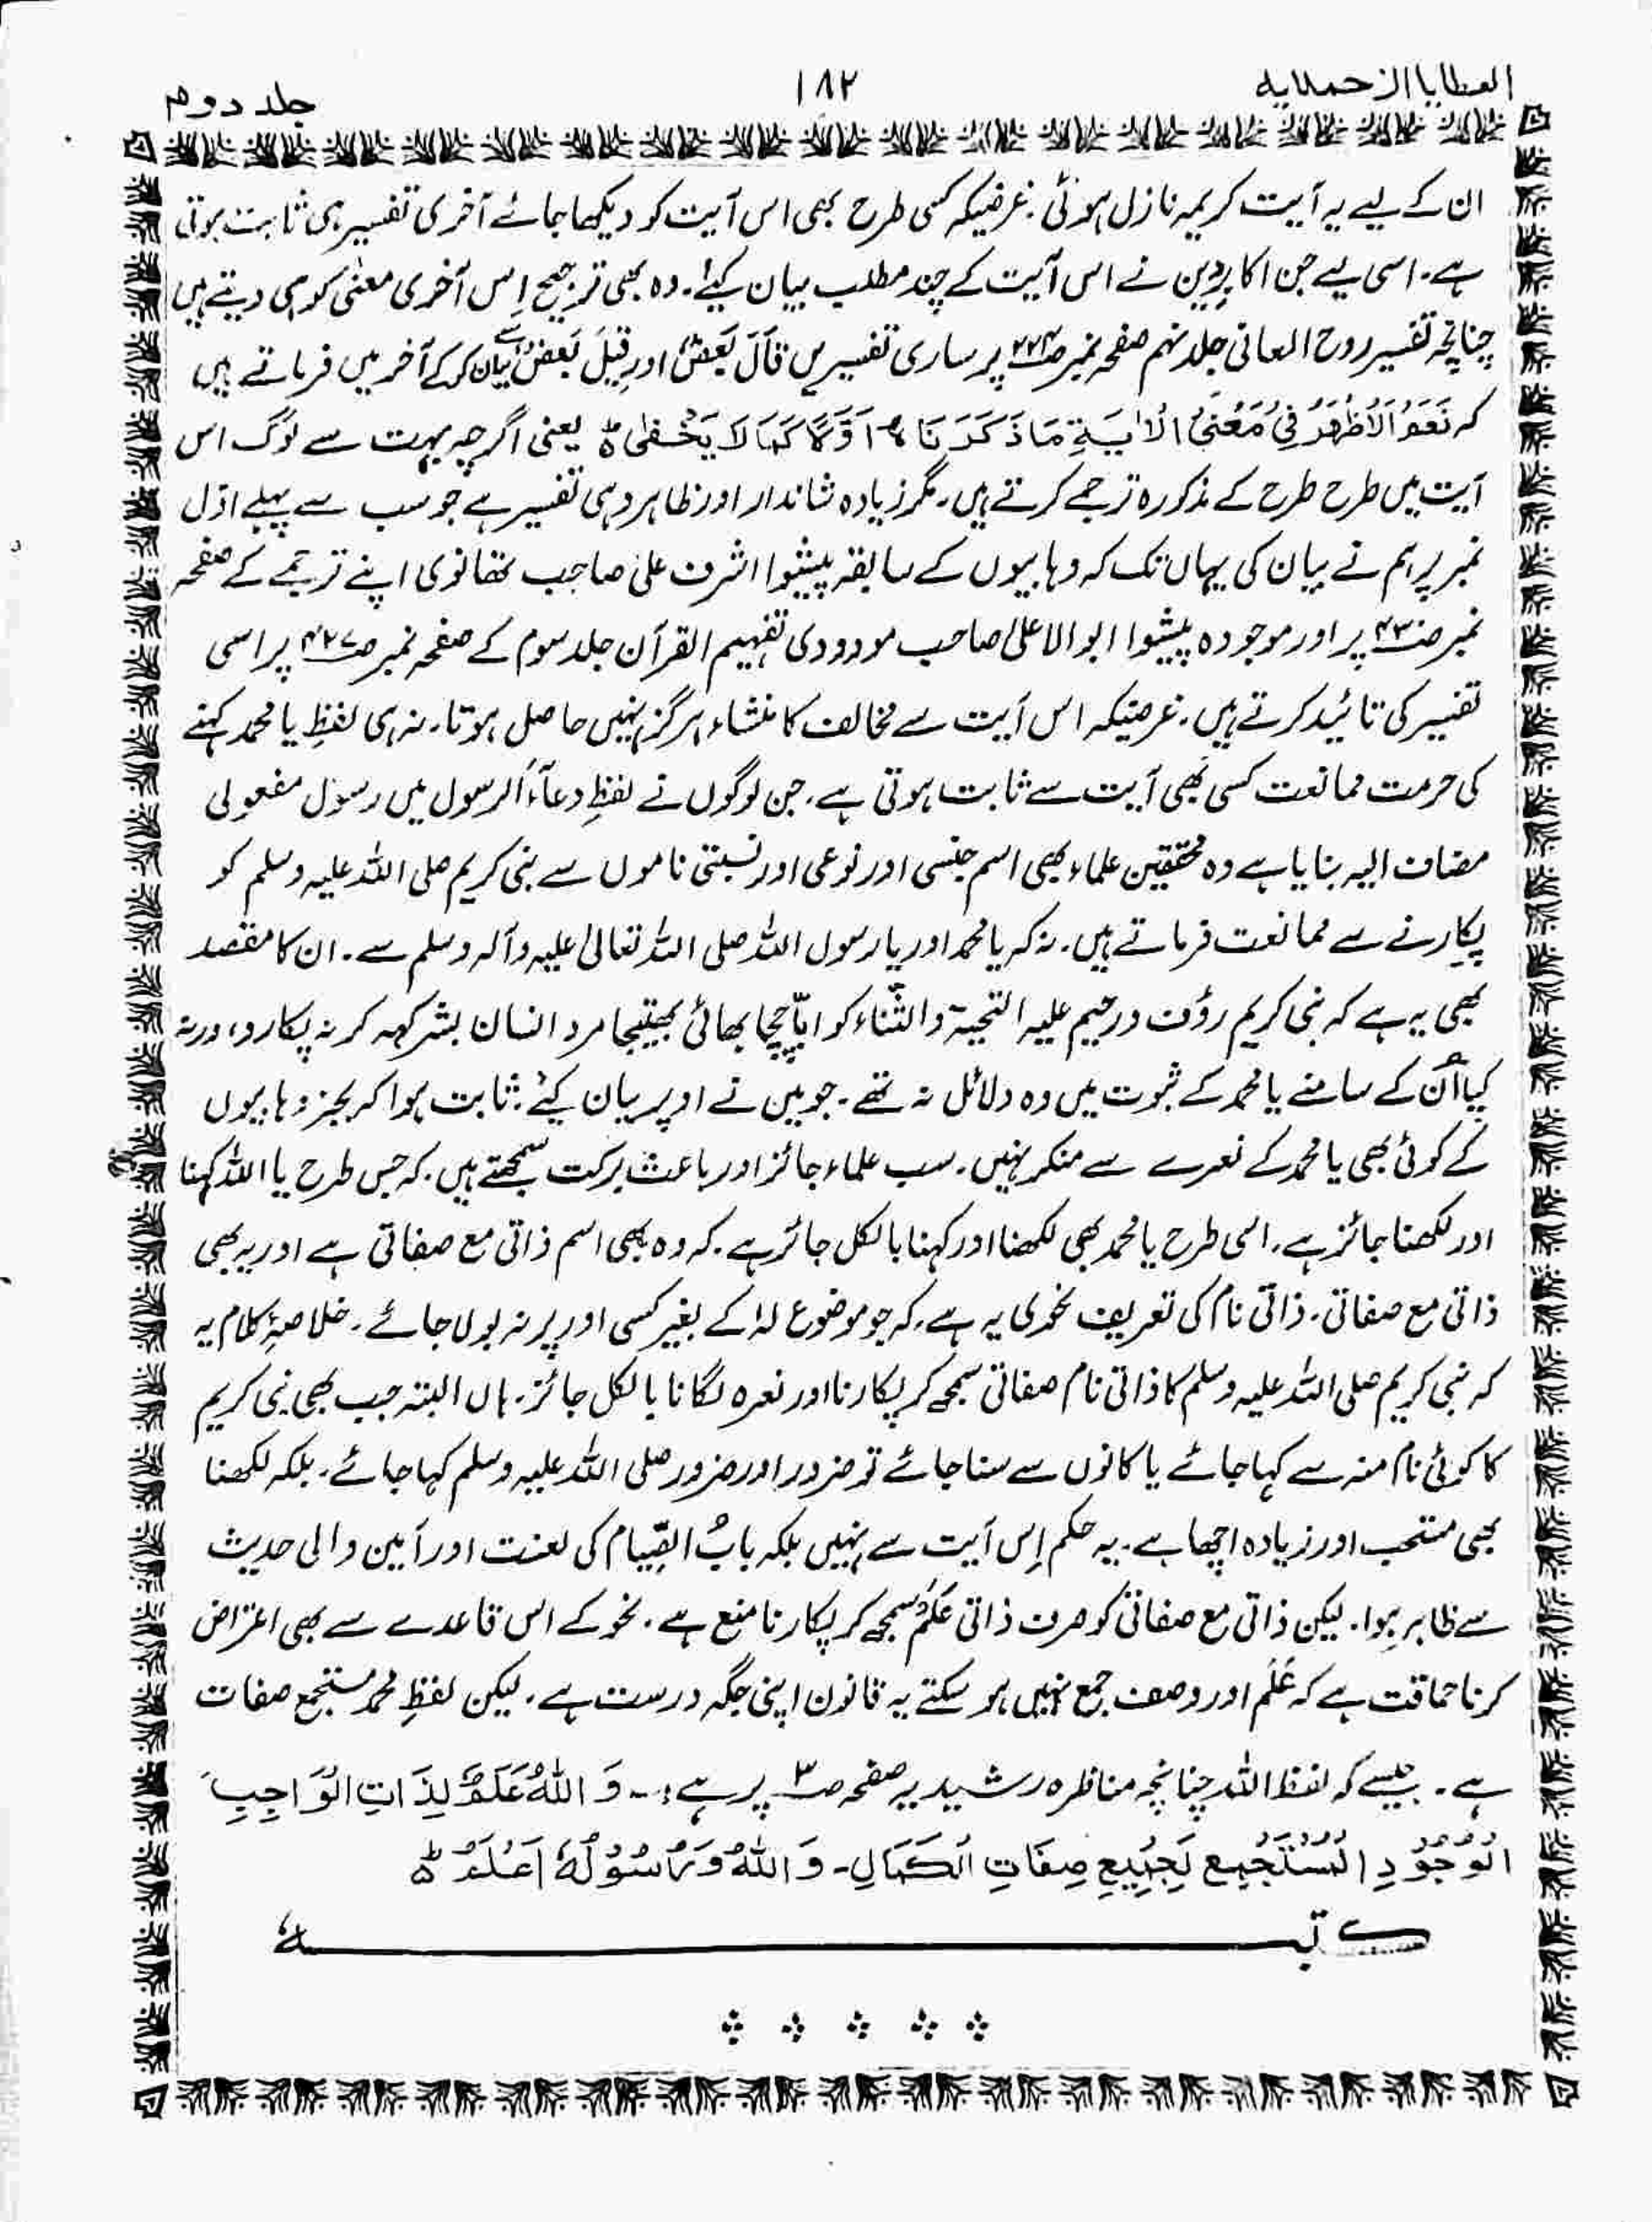 العطایا الاحمدیہ
۱۸۲
جلد دوم
ان کے لیے یہ آیت کریمہ نازل ہوئی۔ غرضیکہ کسی طرح بھی اس آیت کو دیکھا جائے آخری تفسیر ہی ثابت ہوتی
ہے۔ اسی لیے جن اکابرِ دین نے اس آیت کے چند مطلب بیان کیئے۔ وہ بھی ترجیح اِس آخری معنیٰ کو ہی دیتے ہیں
چنانچہ تفسیر روح المعانی جلد نہم صفحہ نمبر ص۲۲۴ پر ساری تفسیریں قَالَ بَعْضٌ اور قِیْلَ بَعْضٌ سے بیان کرکے آخر میں فرماتے ہیں
کہ نَعَمْ اَلْاَظْهَرُ فِیْ مَعْنَی الْاٰیَةِ مَا ذَکَرْنَاہُ اَوَّلًا کَمَا لَا یَخْفٰی ؕ یعنی اگرچہ بہت سے لوگ اس
آیت میں طرح طرح کے مذکورہ ترجمے کرتے ہیں۔ مگر زیادہ شاندار اور ظاہر وہی تفسیر ہے جو سب سے پہلے اوّل
نمبر پر ہم نے بیان کی یہاں تک کہ وہابیوں کے سابقہ پیشوا اشرف علی صاحب تھانوی اپنے ترجمے کے صفحہ
نمبر ص۴۳۰ پر اور موجودہ پیشوا ابوالاعلیٰ صاحب مودودی تفہیم القرآن جلد سوم کے صفحہ نمبر ص۴۲۷ پر اسی
تفسیر کی تائید کرتے ہیں۔ غرضیکہ اس آیت سے مخالف کا منشاء ہرگز نہیں حاصل ہوتا۔ نہ ہی لفظِ یا محمد کہنے
کی حرمت ممانعت کسی بھی آیت سے ثابت ہوتی ہے۔ جن لوگوں نے لفظِ دعآءَ الرسول میں رسول مفعولی
مضاف الیہ بنایا ہے وہ محققین علماء بھی اسم جنسی اور نوعی اور نسبتی ناموں سے نبی کریم صلی اللہ علیہ وسلم کو
پکارنے سے ممانعت فرماتے ہیں۔ نہ کہ یا محمد اور یا رسول اللہ صلی اللہ تعالیٰ علیہ وآلہ وسلم سے۔ ان کا مقصد
بھی یہ ہے کہ نبی کریم رؤف و رحیم علیہ التحیۃ والثّناء کو ابّا چچا بھائی بھتیجا مرد انسان بشر کہہ کر نہ پکارو، ورنہ
کیا اُن کے سامنے یا محمد کے ثبوت میں وہ دلائل نہ تھے۔ جو میں نے اوپر بیان کیئے۔ ثابت ہوا کہ بجز وہابیوں
کے کوئی بھی یا محمد کے نعرے سے منکر نہیں۔ سب علماء جائز اور باعث برکت سمجھتے ہیں۔ کہ جس طرح یا اللہ کہنا
اور لکھنا جائز ہے۔ اسی طرح یا محمد بھی لکھنا اور کہنا بالکل جائز ہے۔ کہ وہ بھی اسم ذاتی مع صفاتی ہے اور یہ بھی
ذاتی مع صفاتی۔ ذاتی نام کی تعریف نحوی یہ ہے۔ کہ جو موضوع لہٗ کے بغیر کسی اور پر نہ بولا جائے۔ خلاصۂِ کلام یہ
کہ نبی کریم صلی اللہ علیہ وسلم کا ذاتی نام صفاتی سمجھ کر پکارنا اور نعرہ لگانا بالکل جائز۔ ہاں البتہ جب بھی نبی کریم
کا کوئی نام منہ سے کہا جائے یا کانوں سے سنا جائے تو ضرور اور ضرور صلی اللہ علیہ وسلم کہا جائے۔ بلکہ لکھنا
بھی مستحب اور زیادہ اچھا ہے۔ یہ حکم اِس آیت سے نہیں بلکہ بابُ القِیام کی لعنت اور آمین والی حدیث
سے ظاہر ہوا۔ لیکن ذاتی مع صفاتی کو صرف ذاتی عَلَمٌ سمجھ کر پکارنا منع ہے۔ نحو کے اس قاعدے سے بھی اعتراض
کرنا حماقت ہے کہ عَلَم اور وصف جمع نہیں ہو سکتے یہ قانون اپنی جگہ درست ہے۔ لیکن لفظِ محمد مستجمع صفات
ہے۔ جیسے کہ لفظ اللہ چنانچہ مناظرہ رشیدیہ صفحہ ص۳ پر ہے :- وَ اللّٰهُ عَلَمٌ لِذَاتِ الْوَاجِبِ
الْوُجُوْدِ الْمُسْتَجْمِعِ لِجَمِیْعِ صِفَاتِ الْکَمَالِ۔ وَ اللّٰهُ وَرَسُوْلُهٗ اَعْلَمُ ؕ
کتبــــــــــــہٗ